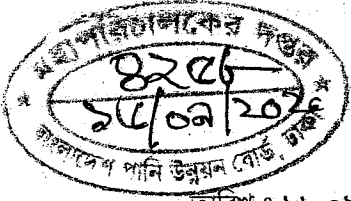 মহাপরিচালকের দপ্তর
৪২৫৮
১৫/০৯/202৫
বাংলাদেশ পানি উন্নয়ন বোর্ড, ঢাকা